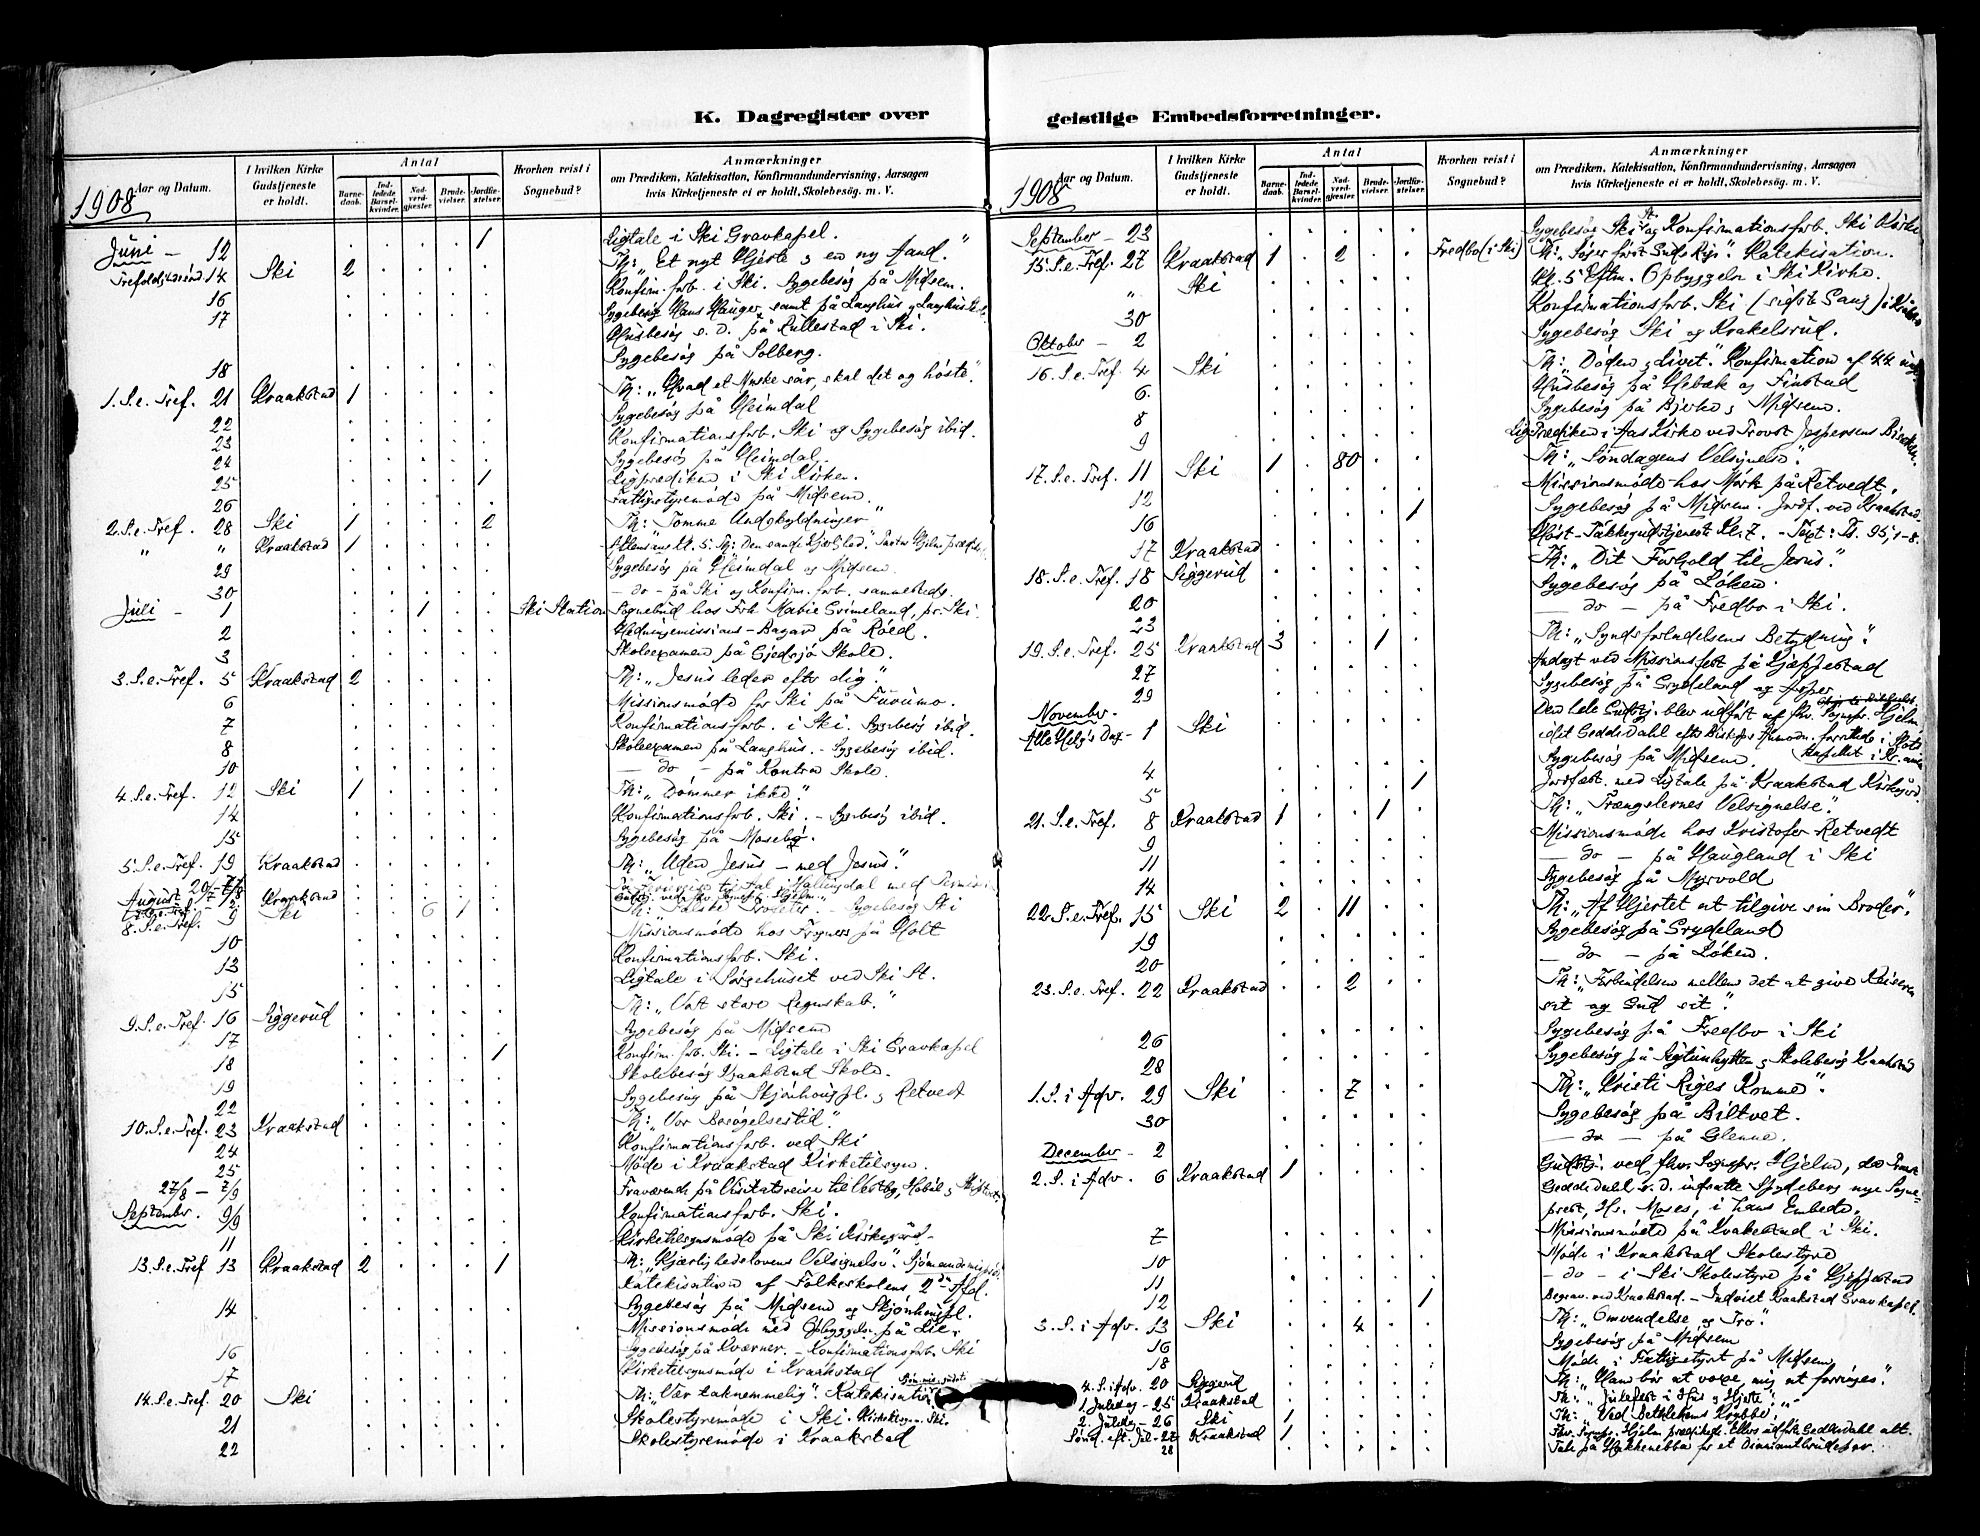 K. Dagregister over
Aar og Datum.
I hvilken Kirke Gudstjeneste er holdt.
Antal
Barnedaab.
Indledede Barselkvinder.
Nadverdgjæster.
Brudevielser.
Jordfæstelser.
Hvorhen reist i Sognebud?
Anmærkninger
om Prædiken, Katekisation, Konfirmandundervisning, Aarsagen
hvis Kirketjeneste ei er holdt, Skolebesøg, m. V.
1908
Juni - 12 1 Ligtale i Ski Gravkapel.
14 Ski 2 Th: "Et nyt Hjerte & en ny Aand."
16 Konfirm.forb. i Ski. Sygebesøg på Midsem.
17 Sygebesøg Hans Hauger, samt på Langhus
Husbesøg o. d. på Rullestad i Ski.
18 Sygebesøg på Solberg.
1. S. e. Tref. 21 Kraakstad 1 Th: "Hvad et Mske sår, skal det og høste".
22 Sygebesøg på Heimdal
23 Konfirmationsforb. Ski og Sygebesøg ibid.
24 Sygebesøg på Heimdal.
25 1 Ligprædiken i Ski Kirken.
26 Fattigstyremøde på Midsem.
2. S. e. Tref. 28 Ski 1 2 Th: "Tomme Undskyldninger"
" " Kraakstad 1
29 Sygebesøg på Heimdal og Midsem.
30 - do - på Ski og Konfirm.forb. sammesteds.
Juli - 1 1 Ski Station Sognebud hos Frk Marie Grimeland, pr. Ski.
2 Hedningemissions-Bazar på Roed.
3 Skoleexamen på Gjedsjø Skole.
3. S. e. Tref. 5 Kraakstad 2 Th: "Jesus leder efter dig."
6 Missionsmøde for Ski på Furumo.
7 Konfirmationsforb. i Ski. Sygebesøg ibid.
8 Skoleexamen på Langhus. - Sygebesøg ibid.
10 - do - på Kontra Skole.
4. S. e. Tref. 12 Ski 1 Th: "Dømmer ikke."
14 Konfirmationsforb. Ski. - Sygebesøg ibid.
15 Sygebesøg på Mosebø.
5. S. e. Tref. 19 Kraakstad Th: "Uden Jesus - med Jesus".
August Kraakstad
8. S. e. Tref. 9 Ski 6 1 Th: "Falske Profeter". - Sygebesøg Ski
10 Missionsmøde hos Frogner på Holt
13 Konfirmationsforb. Ski.
15 Ligtale i Sørgehuset ved Ski St.
9. S. e. Tref. 16 Siggerud Th: "Vort store Regnskab."
17 Sygebesøg på Midsem
18 1 Konfirm.forb. Ski. - Ligtale i Ski Gravkapel
19 Skolebesøg Kraakstad Skole.
22 Sygebesøg på Skjønhoug pl. & Retvedt
10. S. e. Tref. 23 Kraakstad Th: "Vor Besøgelsestid."
24 Konfirmationsforb. ved Ski
25 Møde i Kraakstad Kirketilsyn.
27/8 - 7/9 Fraværende på Visitatsreise til Vestby, Hobøl &
September. 9/9 Konfirmationsforb. Ski.
11 Kirketilsynsmøde på Ski Kirkegård.
13. S. e. Tref 13 Kraakstad 2 1 Th: "Kjærlighedslovens Velsignelse".
Katekisation af Folkeskolens 2den Afd.
14 Sygebesøg på Midsem og Skjønhoug pl.
Missionsmøde med Opbyggelse på Lie.
16 Sygebesøg på Kværner. - Konfirmationsforb. Ski
17 Kirketilsynsmøde i Kraakstad
14. S. e. Tref. 20 Ski Th: "Vær taknemmelig". Katekisation
21 Skolestyremøde i Ski.
22 Skolestyremøde i Kraakstad
geistlige Embedsforretninger.
Aar og Datum.
I hvilken Kirke Gudstjeneste er holdt.
Antal
Barnedaab.
Indledede Barselkvinder.
Nadverdgjæster.
Brudevielser.
Jordfæstelser.
Hvorhen reist i Sognebud?
Anmærkninger
om Prædiken, Katekisation, Konfirmandundervisning, Aarsagen
hvis Kirketjeneste ei er holdt, Skolebesøg, m. V.
1908
September - 23 Sygebesøg Ski St. og Konfirmationsforb. Ski Kirke
15. S. e. Tref. 27 Kraakstad 1 2 Fredbo (i Ski) Th: "Søger først Guds Rige". Katekisation.
" Ski Kl. 5 Eftm. Opbyggelse i Ski Kirke.
30 Konfirmationsforb. Ski (sidste Gang)
Oktober - 2 Sygebesøg Ski og Krakelsrud.
16. S. e. Tref. 4 Ski Th: "Døden & Livet." Konfirmation af 44
6. Husbesøg på Hebæk og Finstad
8 Sygebesøg på Bjerke & Midsem.
9 Ligprædiken i Aas Kirke ved Provst Jespersens
17. S. e. Tref. 11 Ski 1 80 Th: "Søndagens Velsignelse".
12 Missionsmøde hos Mørk på Retvedt.
16 1 Sygebesøg på Midsem. Jordf. ved Kraakstad
17 Kraakstad Høst-Takkegudstjeneste Kl. 7. - Text: Ps. 95, 1-8.
18. S. e. Tref. 18 Siggerud Th: "Dit Forhold til Jesus".
20 Sygebesøg på Løken.
23 - do - på Fredbo i Ski.
19. S. e. Tref. 25 Kraakstad 3 1 Th: "Syndsforladelsens Betydning".
27 Andagt ved Missionsfest på Gjæppestad
29 Sygebesøg på Grydeland og
November.
Alle Helg's Dag - 1 Ski Den hele Gudstj. blev udført af fhv. Sognepr. Hjelm,
4 Sygebesøg på Midsem.
5 1 Jordfæst. med Ligtale på Kraakstad Kirkegård.
21. S. e. Tref. 8 Kraakstad 1 1 Th: "Trængslernes Velsignelse".
9 Missionsmøde hos Kristofer Retvedt
11 - do - på Haugland i Ski
14 Sygebesøg på Myrvold
22. S. e. Tref. 15 Ski 2 11 Th: "Af Hjertet at tilgive sin Broder".
19 Sygebesøg på Grydeland
20 - do - på Løken.
23. S. e. Tref. 22 Kraakstad 2 Th: "Forbindelsen mellem det at give Keiseren
sit og Gud sit".
26 Sygebesøg på Fredbo i Ski
28 Sygebesøg på & Skolebesøg Kraakstad
1. S. i Adv. 29 Ski 7 Th: "Kristi Riges Komme".
30 Sygebesøg på Biltvet.
December - 2 - do - på Glenne.
2. S. i Adv. 6 Kraakstad 1 Gudstj. ved fhv. Sognepr. Hjelm, da Provst
Geddedahl s. D. indsatte nye Sogneprest,
Hr. Moses, i hans Embede.
7 Missionsmøde på Kvakestad i Ski.
10 Møde i Kraakstad Skolestyre
11 - do - i Ski Skolestyre på Gjæppestad
12 1 Begrav. ved Kraakstad. - Indviet Kraakstad Gravkapel.
3. S. i Adv. 13 Ski 4 Th: "Omvendelse og Tro".
16 Sygebesøg på Midsem
18 Møde i Fattigstyret på Midsem
4. S. i Adv. 20 Siggerud Th: "Ham bør at voxe, mig at forringes".
1. Juledag - 25 Kraakstad Th: "Julefest i Hus & Hjerte".
2. Juledag - 26 Ski 1 Th: "Ved Bethlehems Krybbe".
Sønd. eft. Jul - 27 Kraakstad 1 Fhv. Sognepr. Hjelm prædikede. Ellers udførte Geddedahl alt.
28 Tale på Hakkenebba for et Diamantbrudepar.